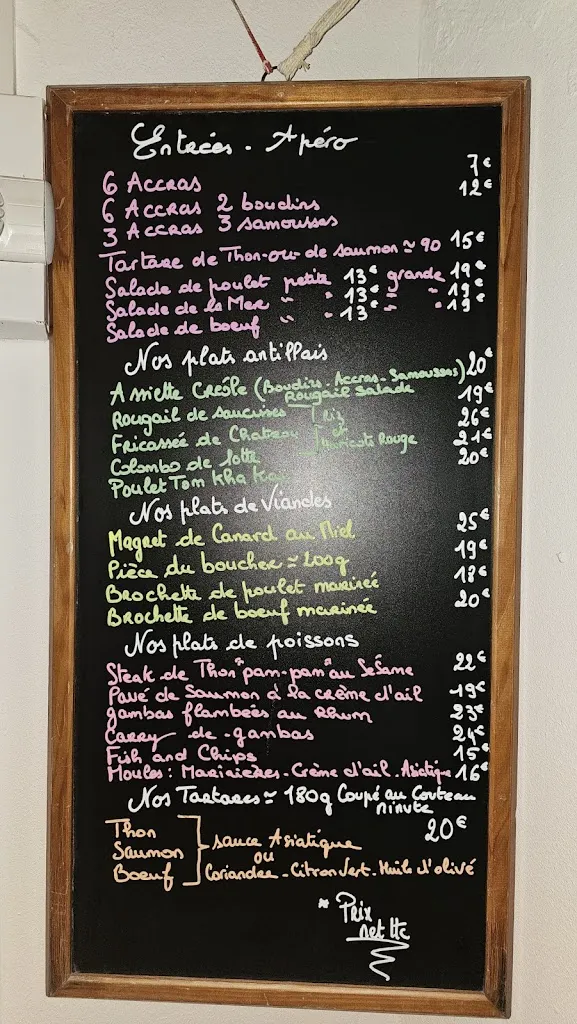 Entrées - Apéro
6 Accras 7€
6 Accras 2 boudins 12€
3 Accras 3 samousses
Tartare de Thon-ou-de saumon ≃ 90 15€
Salade de poulet petite 13€ grande 19€
Salade de la Mer " " 13€ " " 19€
Salade de boeuf " " 13€ " " 19€
Nos plats antillais
Assiette Créole (Boudins-Accras-Samoussas) 20€
Rougail salade
Rougail de saucisses Riz 19€
Fricassée de Chatrou ou 26€
Colombo de lotte Haricots Rouge 21€
Poulet Tom Kha Kai 20€
Nos plats de Viandes
Magret de Canard au Miel 25€
Pièce du boucher ≃ 200g 19€
Brochette de poulet marinée 18€
Brochette de boeuf marinée 20€
Nos plats de poissons
Steak de Thon "pam-pam" au Sésame 22€
Pavé de Saumon à la crème d'ail 19€
gambas flambées au Rhum 23€
Carry de-gambas 24€
Fish and Chips 15€
Moules: Marinières-Crème d'ail-Asiatique 16€
Nos Tartares ≃ 180g Coupé au Couteau
minute
20€
Thon
Saumon sauce Asiatique
ou
Boeuf Coriandre-Citron Vert-Huile d'olive
* Prix
net ttc